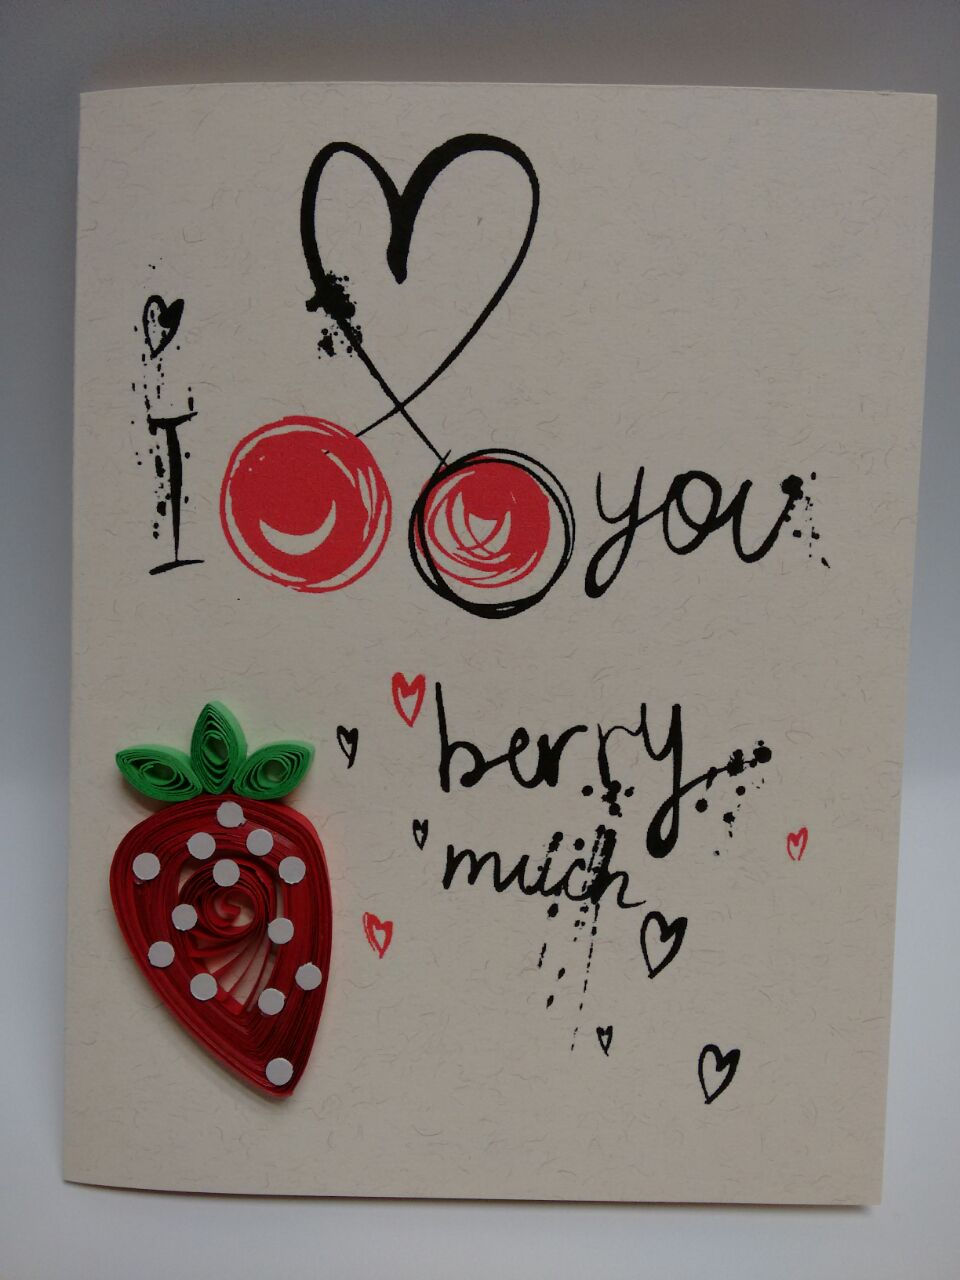 I you
berry
much